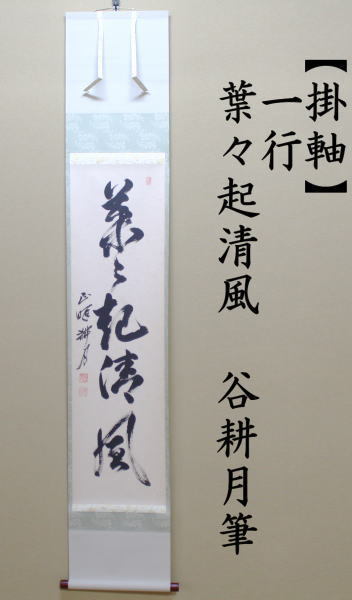 【掛軸】
一行
葉々起清風　谷耕月筆
葉々起清風